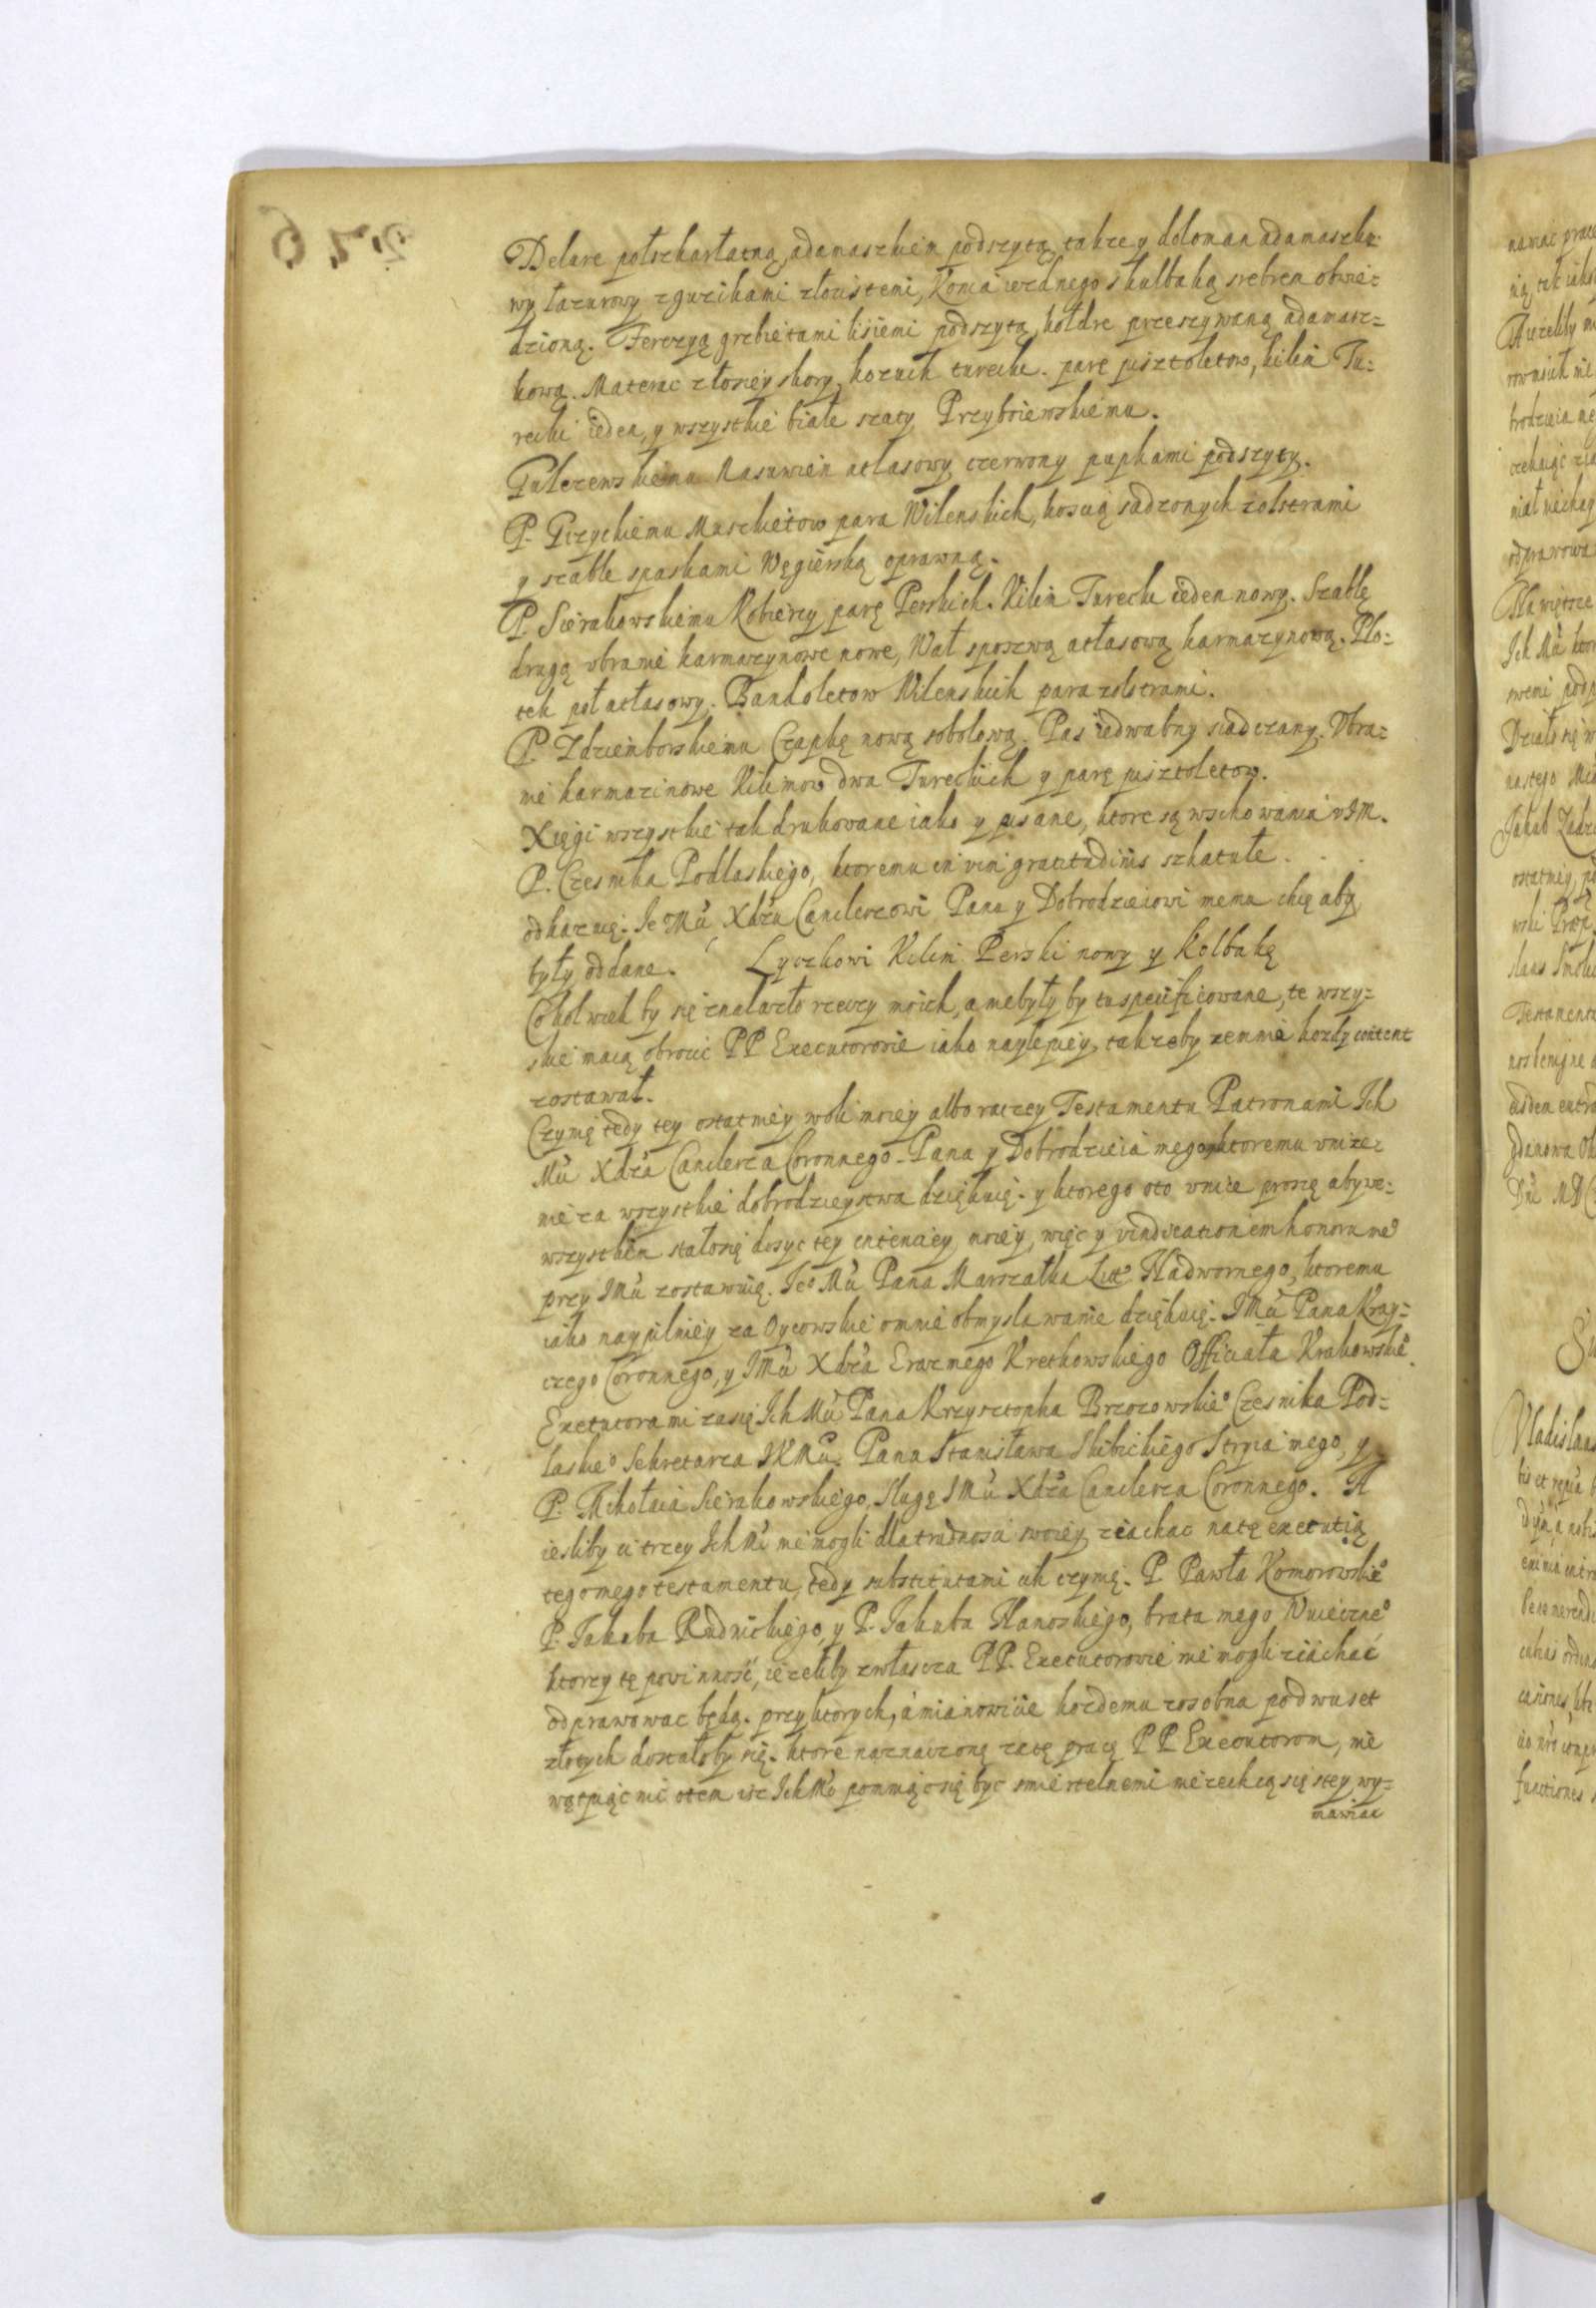 Delure połszkarłatną, adamaszkiem podszytą, takze y doloman adamaszko-
wy łazurowy z guzikami złocistemi, Konia iezdnego s kulbaką srebrem obwie-
dzioną. Ferezyą grzbietami lisiemi podszytą, kołdre przeszywaną adamasz-
kową. Materac z łosiey skory, kozuch turecki. parę pisztoletow, kilim Tu-
recki ieden, y wszystkie białe szaty Przybsiewskiemu.
Gulczewskiemu Kasuwien atłasowy czerwony pupkami podszyty.
P. Gizyckiemu Muszkietow para Wilenskich, koscią sadzonych z olstrami
y szable spaskami Węgierską oprawną.
P. Sierakowskiemu Kobiercy parę Perskich. Kilim Turecki ieden nowy. Szablę
drugą vbranie karmazynowe nowe, Wał sposzwą atłasową karmazynową. Pło-
tek poł atłasowy. Bandoletow Wilenskich para z olstrami.
P. Zdziemborskiemu Czapkę nową sobolową. Pas iedwabny siadczany. Vbra-
nie karmazinowe Kilimow dwa Tureckich y parę pisztoletow.
Xięgi wszystkie tak drukowane iako y pisane, ktore są wschowaniu v IM.
P. Czesnika Podlaskiego, ktoremu in vim gratitudinis szkatułe . . .
odkazuię. Ie° Mu Xdzu Canclerzowi Panu y Dobrodzieiowi memu chcę aby
były oddane. Łyczkowi Kilim Perski nowy y Kolbakę
Cokolwiek by się znalazło rzeczy moich, a niebyły by tu specificowane, te wszy-
skie maią obrocic PP Executorowie iako naylepiey, tak zeby zemnie kozdy content
zostawał.
Czynię tedy tey ostatniey woli moiey albo raczey Testamentu Patronami Ich
Mu Xdza Canclerza Coronnego. Pana y Dobrodzieia mego, ktoremu vnize-
nie za wszystkie dobrodzieystwa dziękuię. y ktorego oto vnize proszę aby we-
wszystkim stało się dosyc tey intenciey moiey, więc y vindicationem honoru me°
przy IMu zostawuię. Ie° Mu Pana Marszałka Lit° Nadwornego, ktoremu
iako naypilniey za Oycowskie omnie obmyslawanie dziękuię. IMu Pana Kray-
czego Coronnego, y IMu Xdza Erazmego Kretkowskiego Officiała Krakowskie°.
Executorami zasię Ich Mu Pana Krzysztopha Brzozowskie° Czesnika Pod-
laskie° Sekretarza IKMu. Pana Stanisława Skibickiego Stryia mego, y
P. Mikołaia Sierakowskiego, Sługę IMu Xdza Canclerza Coronnego. A
iesliby ci trzey Ich Mu nie mogli dla trudnosci swoiey ziachac na tę executią
tego mego testamentu, tedy substitutami ich czynię. P. Pawła Komorowskie°
P. Iakuba Rudnickiego, y P. Iakuba Hanoskiego, brata mego Wuieczne°
ktorzy tę powinnosć, iezeliby zwłascza PP. Executorowie nie mogli ziachać
odprawowac będą. przy ktorych, á mianowicie kozdemu zosobna po dwu set
złotych dostałoby się. ktore naznaczonę zatę pracę PP Executorom, nie
wątpiąc nic otem isz Ich Mu pomniąc się byc smiertelnemi niezechcą się stey wy-
mawiac